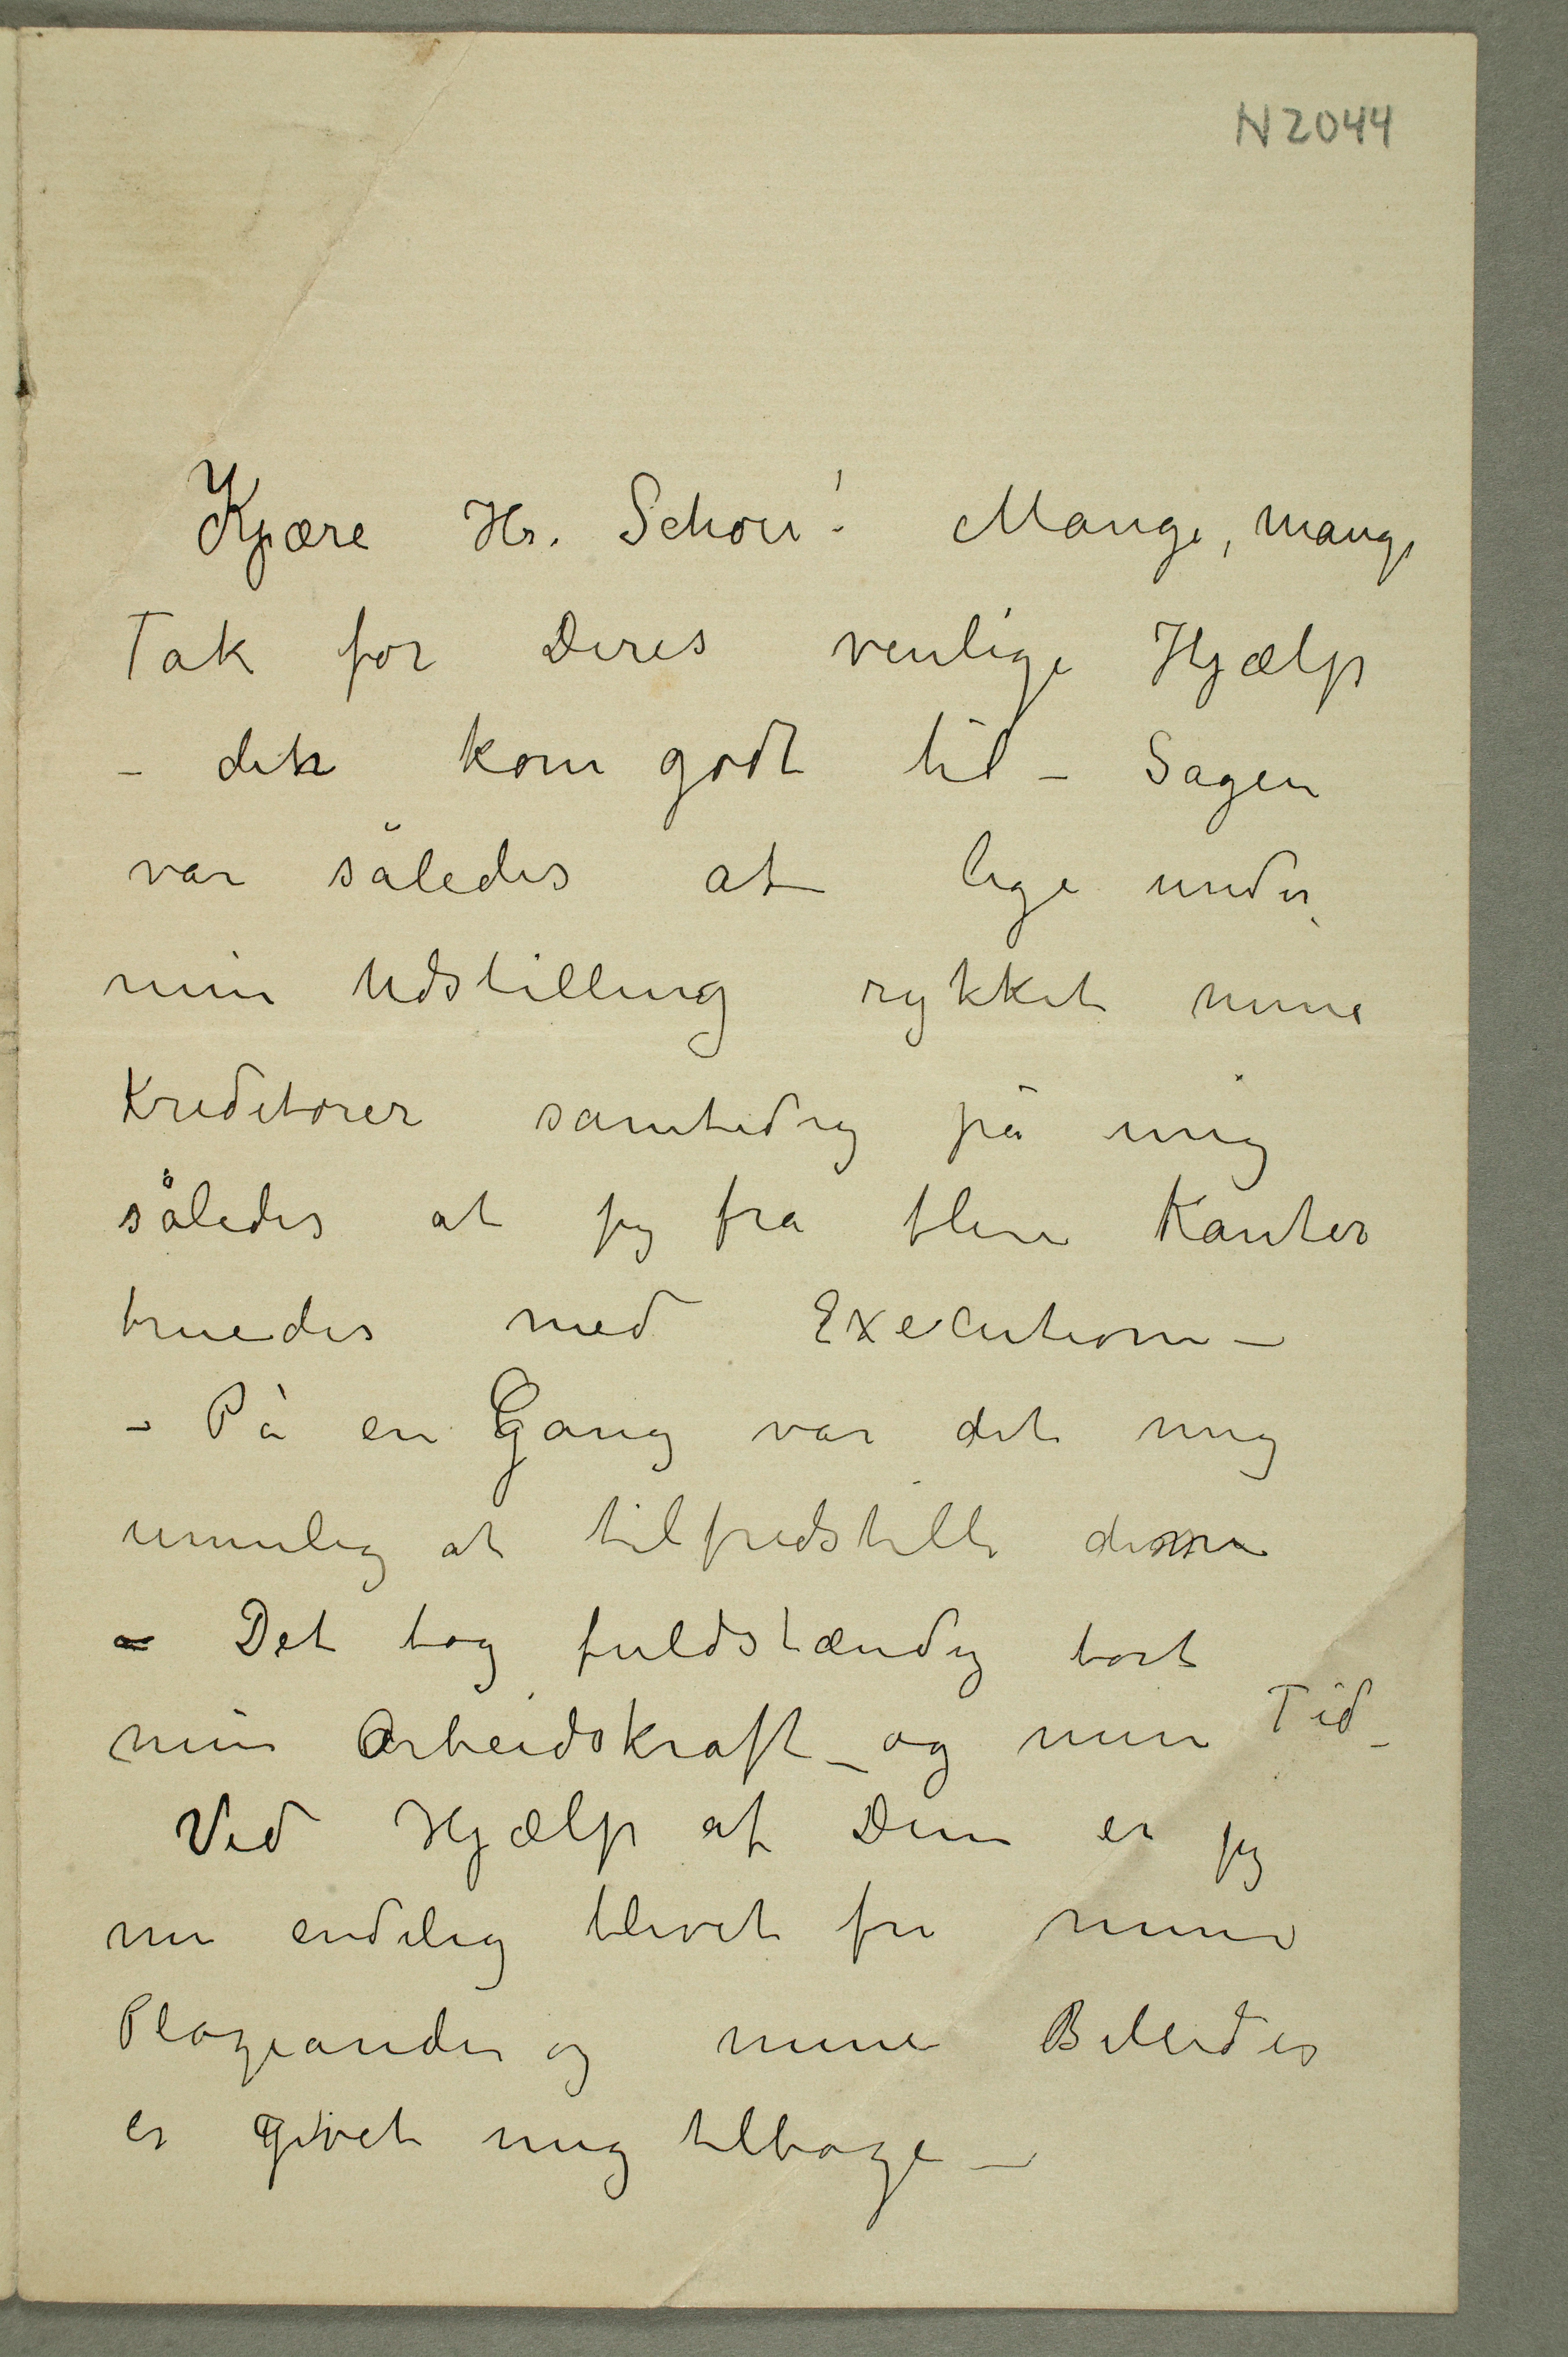 N 2044
Kjære Hr. Schou! Mange, mange
Tak for Deres venlige Hjælp
– den kom godt til – Sagen
var således at lige under
min Udstilling rykket mine
Kreditorer samtidig på mig
således at jeg fra flere Kanter
truedes med Execution –
– På en Gang var det mig
umulig at tilfredstille dem
– Det tog fuldstændig bort
min Arbeidskraft – og min Tid –
Ved Hjælp af Dem er jeg
nu endelig blevet fri mine
Plageånder og mine Billeder
er givet mig tilbage –